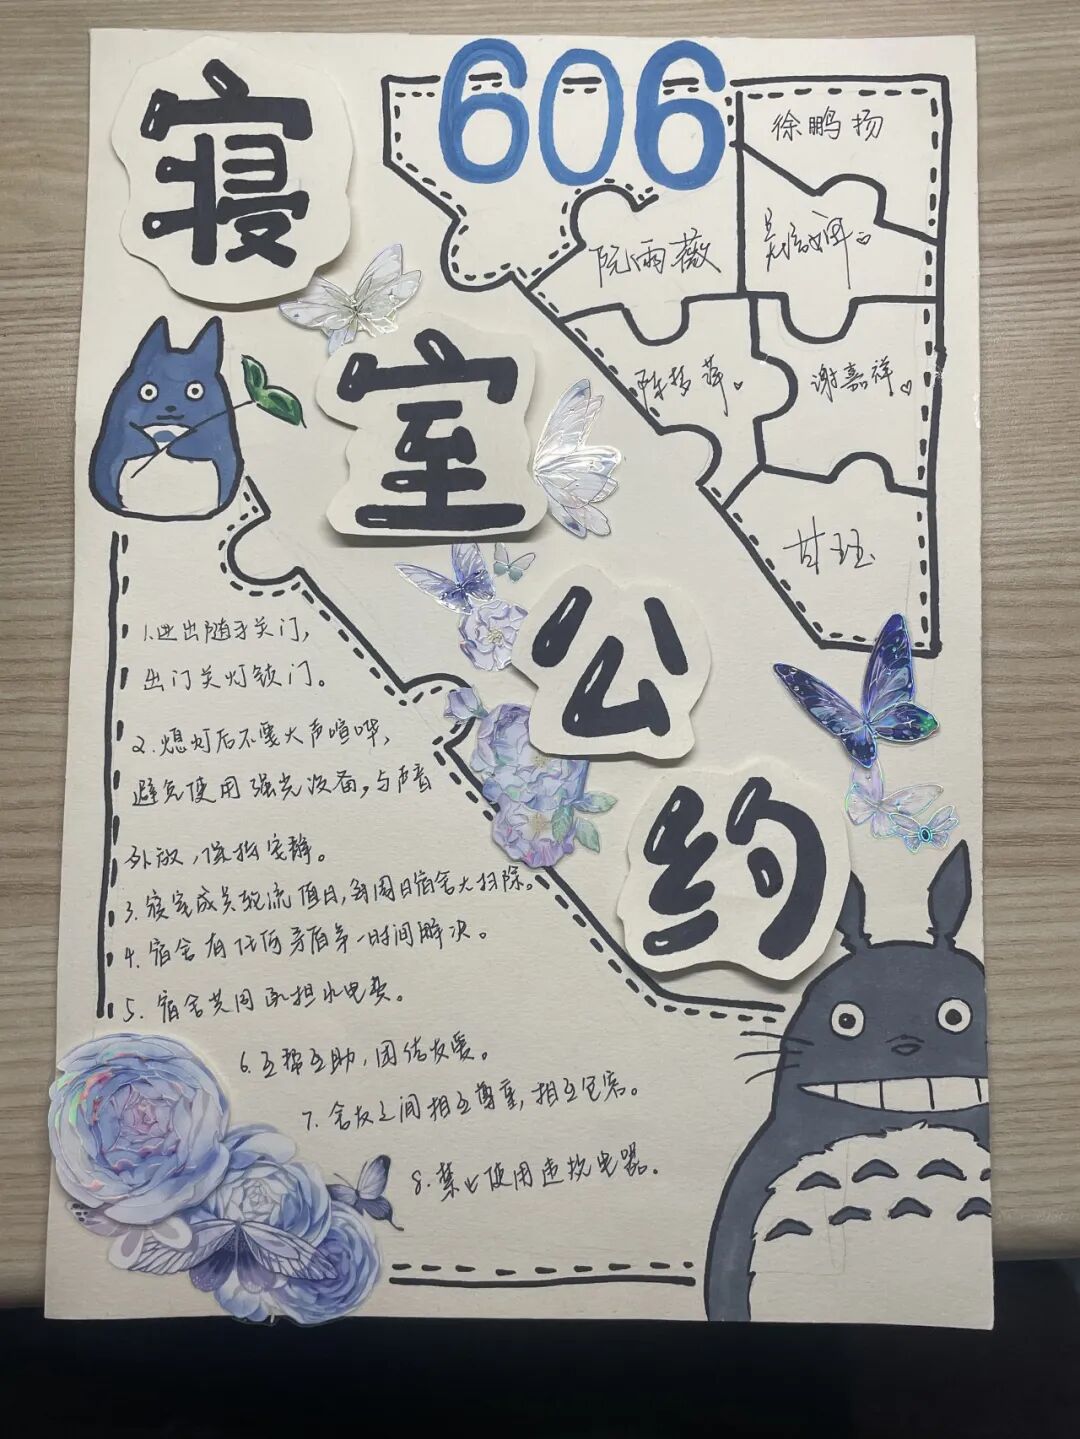 寝
室
公
约
606
徐鹏扬
阮雨薇
谢嘉祥
甘珏
1.进出随手关门,
出门关灯锁门。
2.熄灯后不要大声喧哗,
避免使用强光设备,与声音
外放,保持安静。
3.寝室成员轮流值日,每周日宿舍大扫除。
4.宿舍有任何矛盾第一时间解决。
5.宿舍共同承担水电费。
6.互帮互助,团结友爱。
7.舍友之间相互尊重,相互包容。
8.禁止使用违规电器.